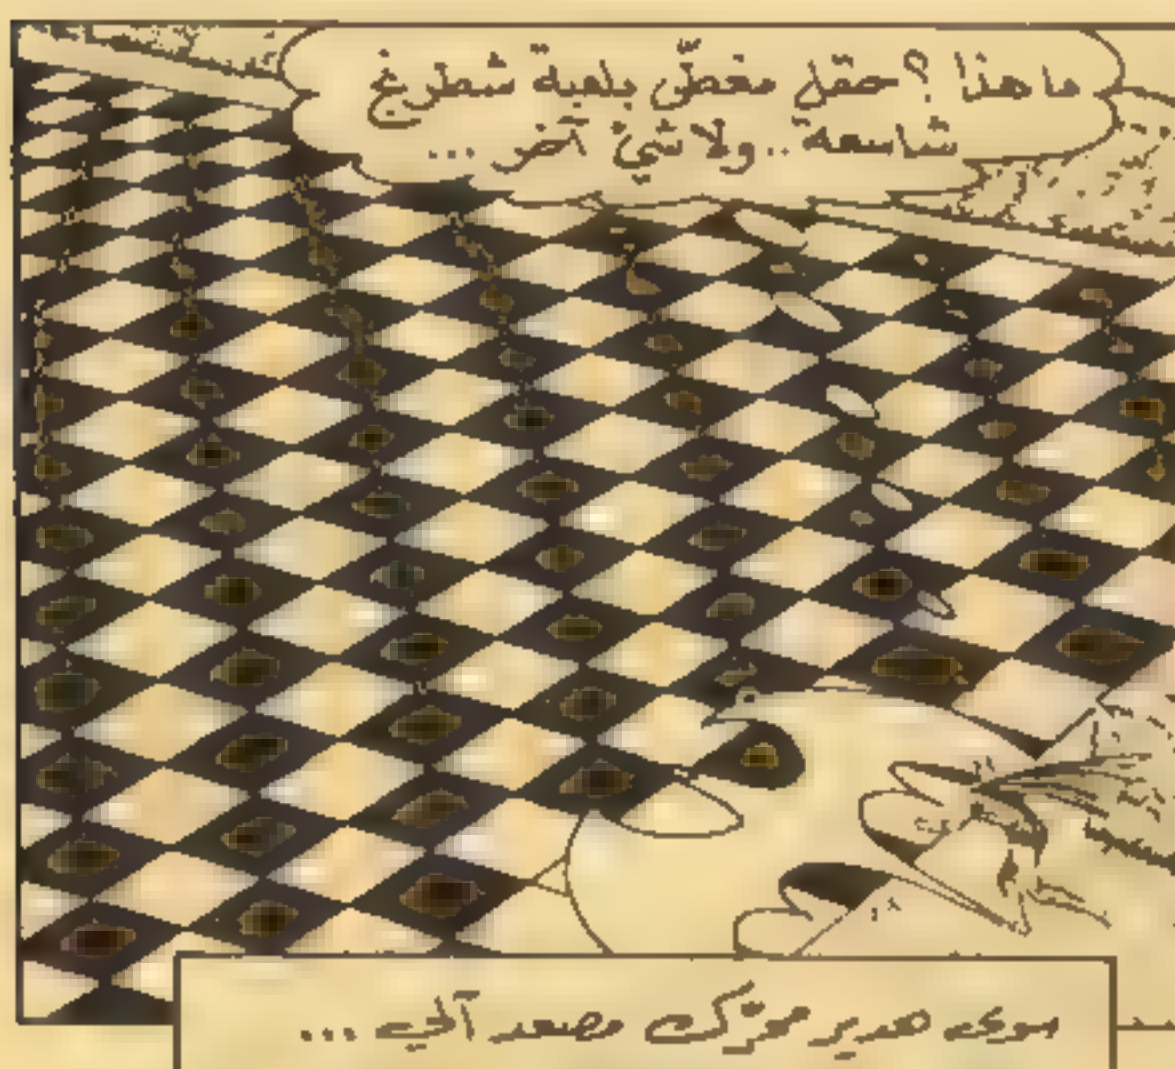 ما هذا ؟ حقل مغطّى بلعبة شطرنج
شاسعة .. ولا شيْ آخر ...
سوى هدير محرّك مصعد آلي ...